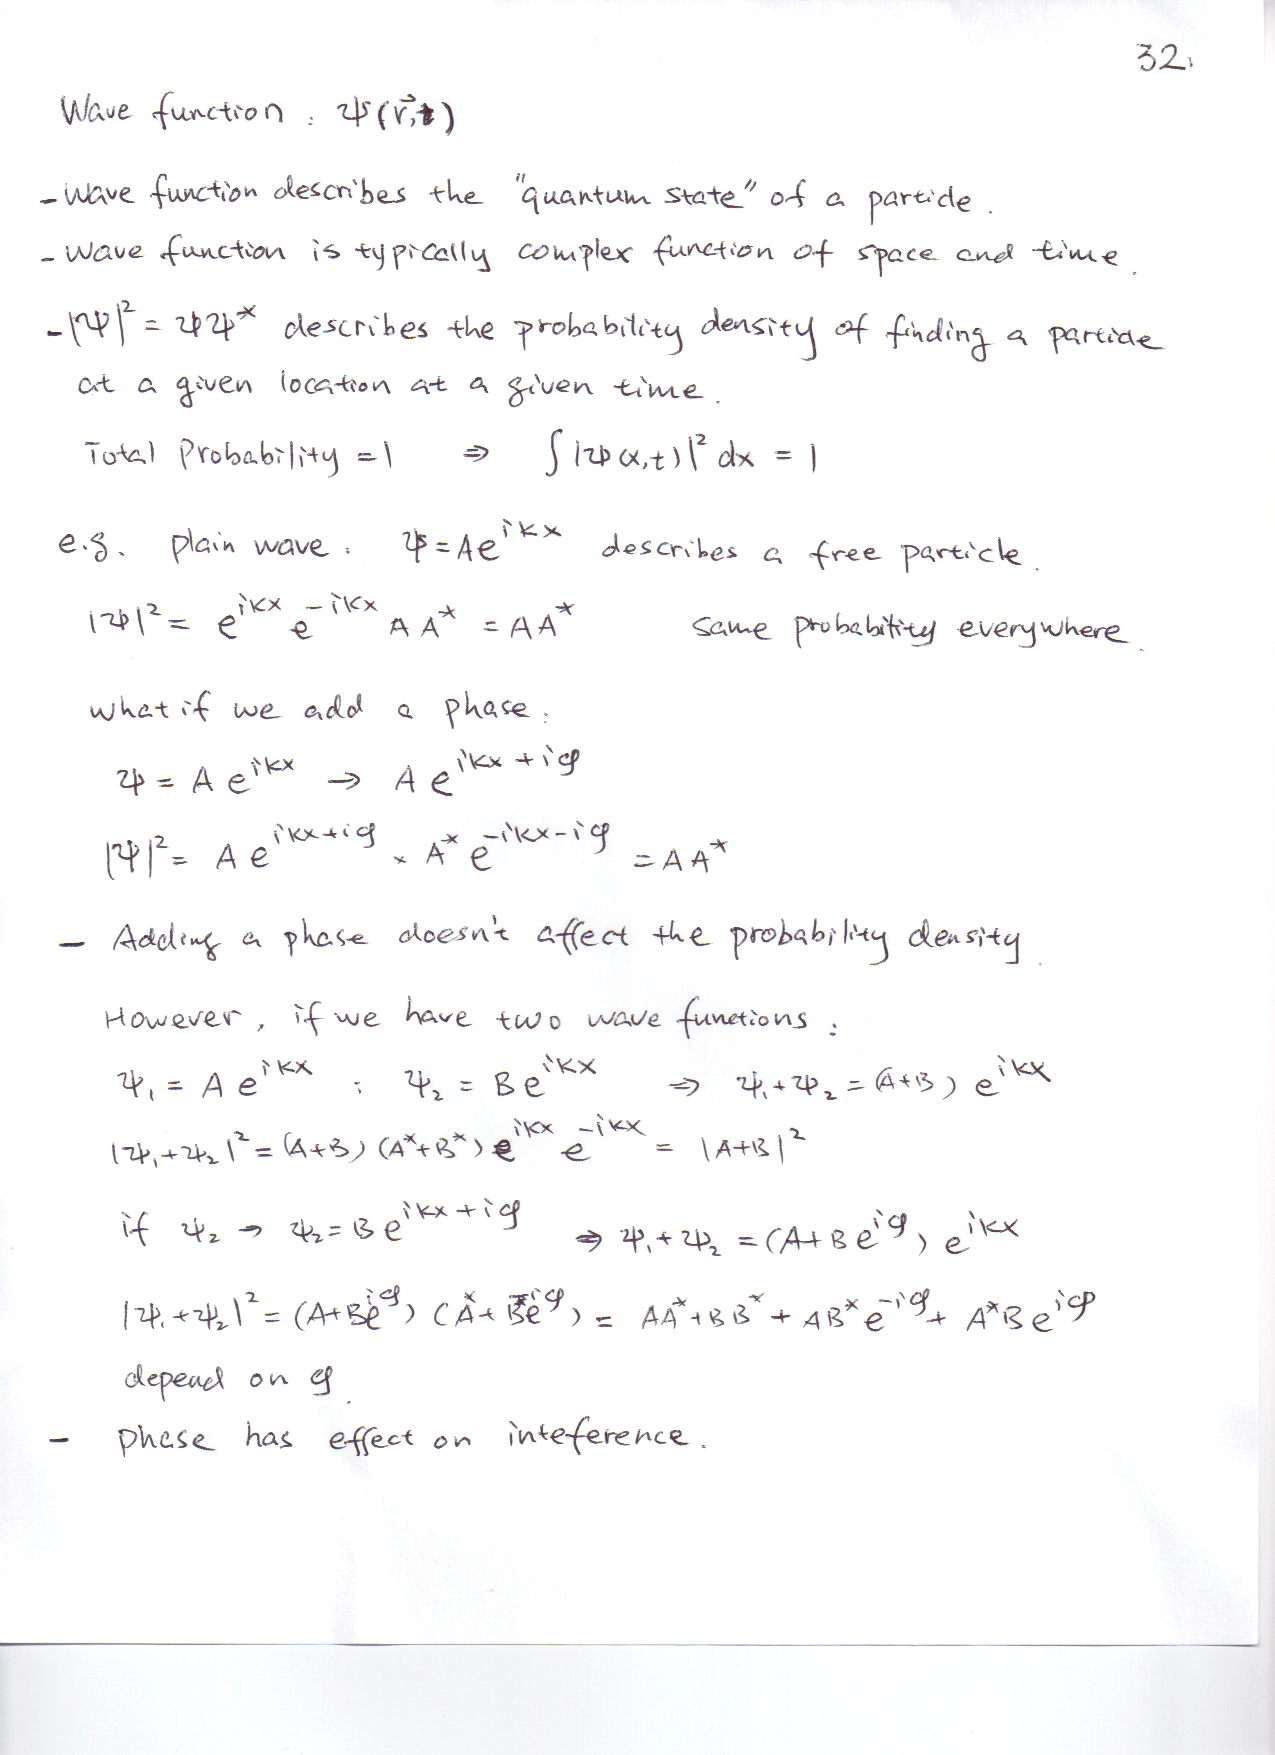 32.
Wave function : ψ(r⃗,t)
- Wave function describes the "quantum state" of a particle.
- Wave function is typically complex function of space and time.
- |ψ|² = ψψ* describes the probability density of finding a particle
at a given location at a given time.
Total Probability = 1 ⇒ ∫|ψ(x,t)|² dx = 1
e.g. plain wave : ψ = Ae^{ikx} describes a free particle.
|ψ|² = e^{ikx} e^{-ikx} A A* = AA* same probability everywhere.
what if we add a phase :
ψ = A e^{ikx} → A e^{ikx+iφ}
|ψ|² = A e^{ikx+iφ} × A* e^{-ikx-iφ} = AA*
- Adding a phase doesn't affect the probability density.
However, if we have two wave functions :
ψ₁ = A e^{ikx} ; ψ₂ = B e^{ikx} ⇒ ψ₁+ψ₂ = (A+B) e^{ikx}
|ψ₁+ψ₂|² = (A+B) (A*+B*) e^{ikx} e^{-ikx} = |A+B|²
if ψ₂ → ψ₂ = B e^{ikx+iφ} ⇒ ψ₁+ψ₂ = (A+B e^{iφ}) e^{ikx}
|ψ₁+ψ₂|² = (A+Be^{iφ}) (A*+B*e^{-iφ}) = AA*+BB*+AB*e^{-iφ}+A*Be^{iφ}
depend on φ.
- phase has effect on inteference.